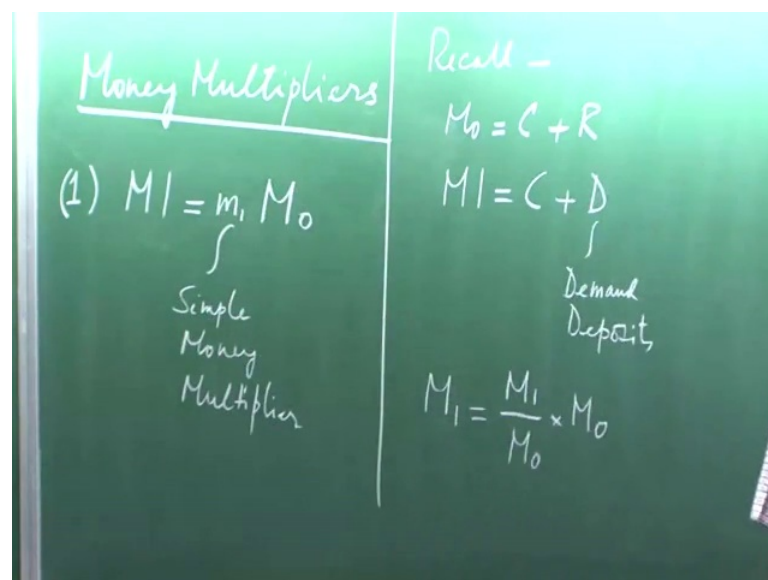 Money Multipliers
(1) M1 = m₁ M₀
Simple
Money
Multiplier
Recall –
M₀ = C + R
M1 = C + D
Demand
Deposits
M₁ = M₁/M₀ × M₀